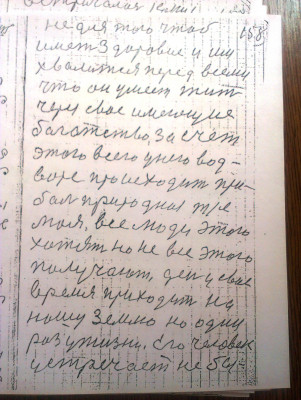 158
не для того чтоб
имет здоровие и им
хвалится перед всеми
что он умеет жит
через свое имеющие
богатство, за счет
этого всего у него вод-
воре происходит при-
бал природная
все люди этого
хотят но не все этого
получают, ден у свое
время приходит на
нашу землю но один
раз у жизни. Его человек
устречает не бу